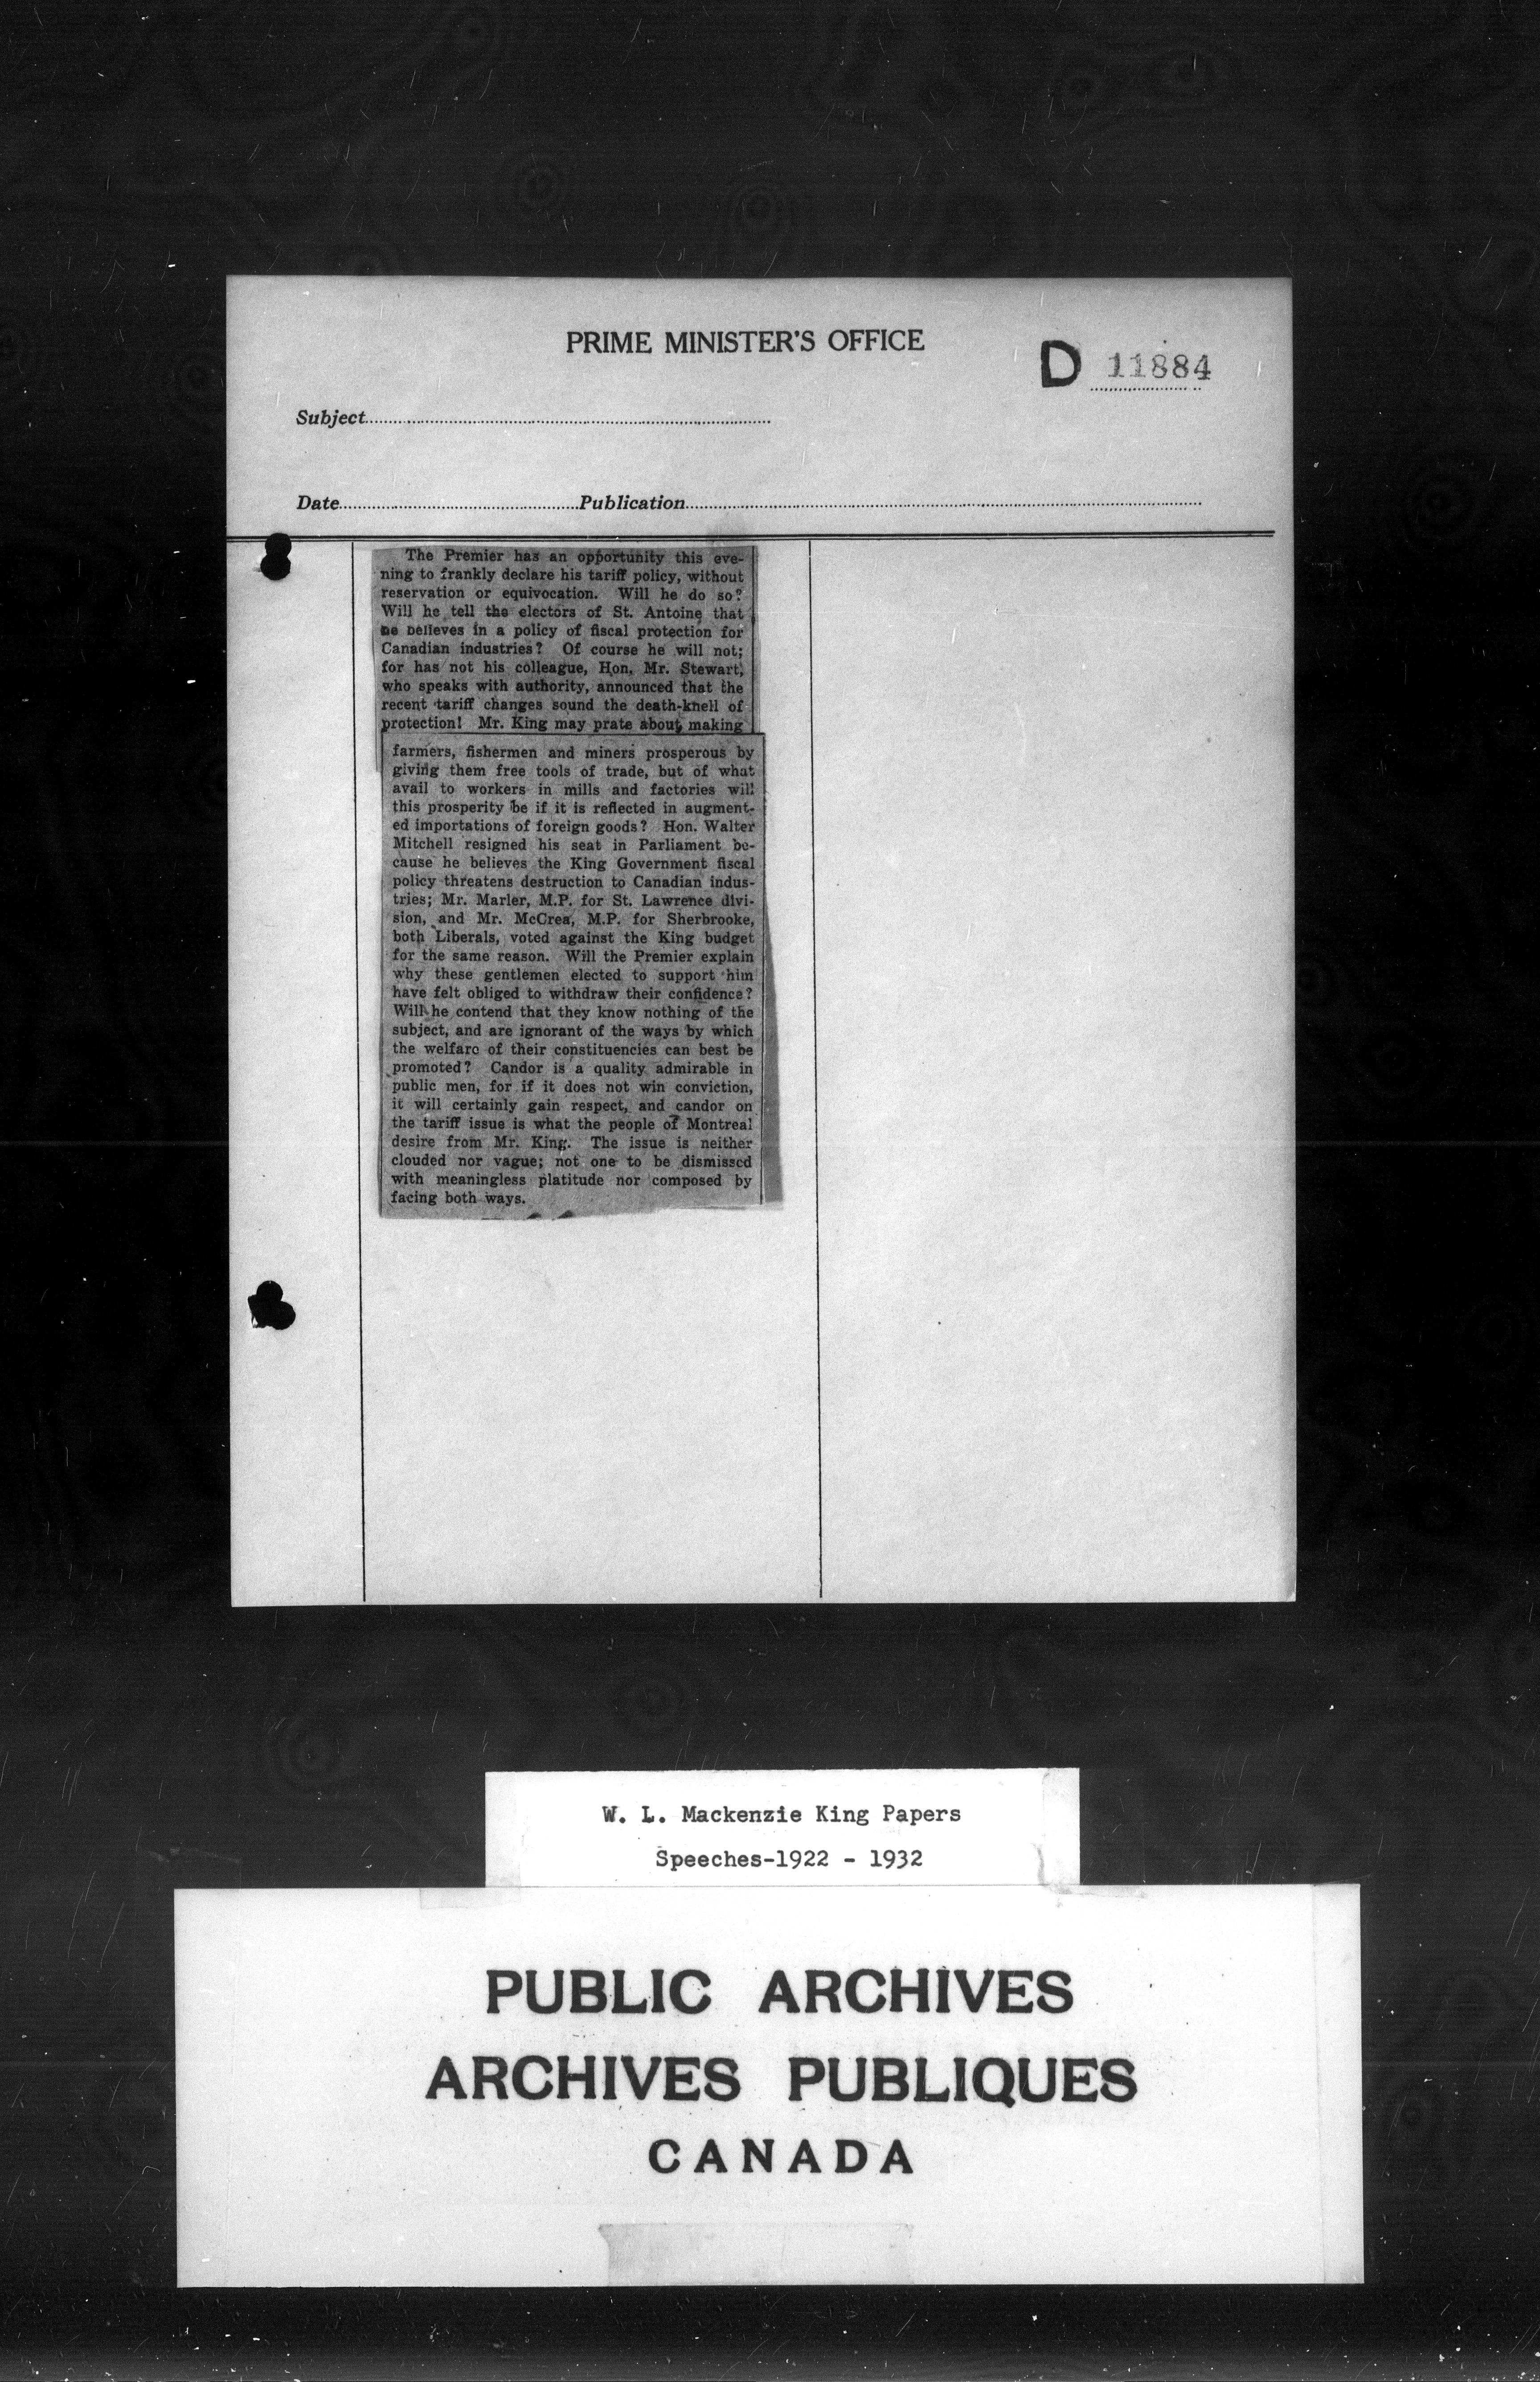 PRIME MINISTER'S OFFICE
D 11884
Subject
Date Publication
The Premier has an opportunity this eve-
ning to frankly declare his tariff policy, without
reservation or equivocation. Will he do so?
Will he tell the electors of St. Antoine that
he believes in a policy of fiscal protection for
Canadian industries? Of course he will not;
for has not his colleague, Hon. Mr. Stewart,
who speaks with authority, announced that the
recent tariff changes sound the death-knell of
protection! Mr. King may prate about making
farmers, fishermen and miners prosperous by
giving them free tools of trade, but of what
avail to workers in mills and factories will
this prosperity be if it is reflected in augment-
ed importations of foreign goods? Hon. Walter
Mitchell resigned his seat in Parliament be-
cause he believes the King Government fiscal
policy threatens destruction to Canadian indus-
tries; Mr. Marler, M.P. for St. Lawrence divi-
sion, and Mr. McCrea, M.P. for Sherbrooke,
both Liberals, voted against the King budget
for the same reason. Will the Premier explain
why these gentlemen elected to support him
have felt obliged to withdraw their confidence?
Will he contend that they know nothing of the
subject, and are ignorant of the ways by which
the welfare of their constituencies can best be
promoted? Candor is a quality admirable in
public men, for if it does not win conviction,
it will certainly gain respect, and candor on
the tariff issue is what the people of Montreal
desire from Mr. King. The issue is neither
clouded nor vague; not one to be dismissed
with meaningless platitude nor composed by
facing both ways.
W. L. Mackenzie King Papers
Speeches-1922 - 1932
PUBLIC ARCHIVES
ARCHIVES PUBLIQUES
CANADA